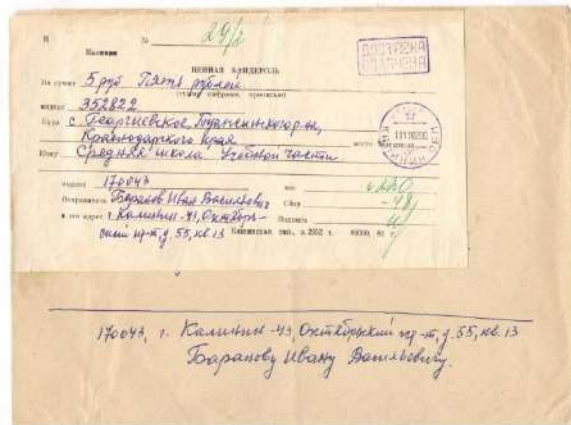 Н № 29/2
Калинин
ДОСТАВКА
ОПЛАЧЕНА
ЦЕННАЯ БАНДЕРОЛЬ
На сумму 5 руб Пять рублей
(сумма цифрами, прописью)
индекс 352822
Куда с. Георгиевское, Туапсинского р-на,
Краснодарского края
место
КАЛИНИН
Кому Средняя школа Учебной части
индекс 170043 вес
Отправитель Баранов Иван Васильевич Сбор -48
и его адрес г. Калинин-43, Октябрь- Подпись
ский пр-т, д. 55, кв. 13 Калининская тип., з. 2952 г.
170043, г. Калинин-43, Октябрьский пр-т, д. 55, кв. 13
Баранову Ивану Васильевичу.